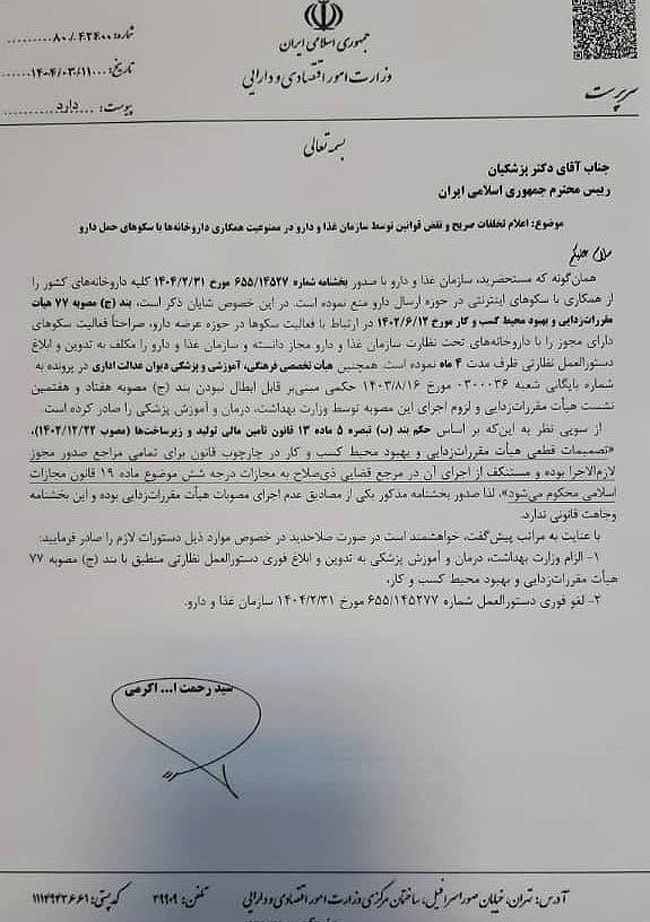 جمهوری اسلامی ایران
وزارت امور اقتصادی و دارایی
شماره: ۸۰/۴۲۴۰۰
تاریخ: ۱۴۰۴/۰۳/۱۱
پیوست: دارد
سرپرست
بسمه تعالی
جناب آقای دکتر پزشکیان
رییس محترم جمهوری اسلامی ایران
موضوع: اعلام تخلفات صریح و نقض قوانین توسط سازمان غذا و دارو در ممنوعیت همکاری داروخانه‌ها با سکوهای حمل دارو
سلام علیکم
همان‌گونه که مستحضرید، سازمان غذا و دارو با صدور بخشنامه شماره ۶۵۵/۱۴۵۲۷ مورخ ۱۴۰۴/۲/۳۱ کلیه داروخانه‌های کشور را
از همکاری با سکوهای اینترنتی در حوزه ارسال دارو منع نموده است. در این خصوص شایان ذکر است، بند (ج) مصوبه ۷۷ هیأت
مقررات‌زدایی و بهبود محیط کسب و کار مورخ ۱۴۰۲/۶/۱۲ در ارتباط با فعالیت سکوها در حوزه عرضه دارو، صراحتاً فعالیت سکوهای
دارای مجوز را با داروخانه‌های تحت نظارت سازمان غذا و دارو مجاز دانسته و سازمان غذا و دارو را مکلف به تدوین و ابلاغ
دستورالعمل نظارتی ظرف مدت ۴ ماه نموده است. همچنین هیأت تخصصی فرهنگی، آموزشی و پزشکی دیوان عدالت اداری در پرونده به
شماره بایگانی شعبه ۰۳۰۰۰۳۶ مورخ ۱۴۰۳/۸/۱۶ حکمی مبنی‌بر قابل ابطال نبودن بند (ج) مصوبه هفتاد و هفتمین
نشست هیأت مقررات‌زدایی و لزوم اجرای این مصوبه توسط وزارت بهداشت، درمان و آموزش پزشکی را صادر کرده است.
از سویی نظر به این‌که بر اساس حکم بند (ب) تبصره ۵ ماده ۱۳ قانون تأمین مالی تولید و زیرساخت‌ها (مصوب ۱۴۰۲/۱۲/۲۲)،
«تصمیمات قطعی هیأت مقررات‌زدایی و بهبود محیط کسب و کار در چارچوب قانون برای تمامی مراجع صدور مجوز
لازم‌الاجرا بوده و مستنکف از اجرای آن در مرجع قضایی ذی‌صلاح به مجازات درجه شش موضوع ماده ۱۹ قانون مجازات
اسلامی محکوم می‌شود»، لذا صدور بخشنامه مذکور یکی از مصادیق عدم اجرای مصوبات هیأت مقررات‌زدایی بوده و این بخشنامه
وجاهت قانونی ندارد.
با عنایت به مراتب پیش‌گفت، خواهشمند است در صورت صلاحدید در خصوص موارد ذیل دستورات لازم را صادر فرمایید:
۱- الزام وزارت بهداشت، درمان و آموزش پزشکی به تدوین و ابلاغ فوری دستورالعمل نظارتی منطبق با بند (ج) مصوبه ۷۷
هیأت مقررات‌زدایی و بهبود محیط کسب و کار،
۲- لغو فوری دستورالعمل شماره ۶۵۵/۱۴۵۲۷۷ مورخ ۱۴۰۴/۲/۳۱ سازمان غذا و دارو.
سید رحمت ا... اکرمی
آدرس: تهران، خیابان صوراسرافیل، ساختمان مرکزی وزارت امور اقتصادی و دارایی تلفن: ۳۹۹۰۹ کدپستی: ۱۱۱۴۹۴۳۶۶۱